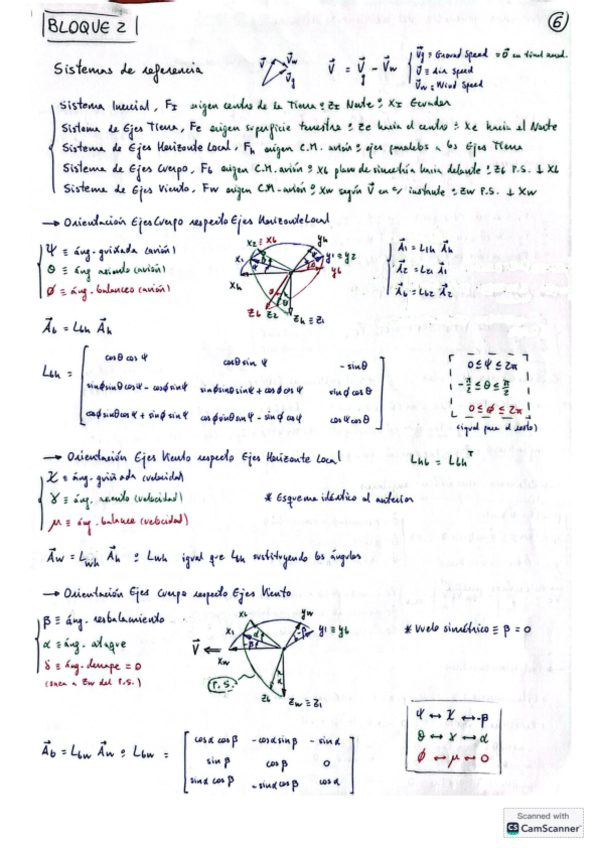 BLOQUE 2
6
Sistemas de referencia
V Vw Vg
V = Vg - Vw
Vg ≡ Ground Speed = V en wind
V ≡ Air Speed
Vw ≡ Wind Speed
Sistema Inercial, FI origen centro de la Tierra : ZI Norte : XI Ecuador
Sistema de Ejes Tierra, Fe origen superficie terrestre : Ze hacia el centro : Xe hacia el Norte
Sistema de Ejes Horizonte Local, Fh origen C.M. avión : ejes paralelos a los Ejes Tierra
Sistema de Ejes Cuerpo, Fb origen C.M. avión : Xb plano de simetría hacia delante : Zb P.S. ⊥ Xb
Sistema de Ejes Viento, Fw origen C.M. avión : Xw según V en c/ instante : Zw P.S. ⊥ Xw
→ Orientación Ejes Cuerpo respecto Ejes Horizonte Local
Ψ ≡ áng. guiñada (avión)
θ ≡ áng. asiento (avión)
φ ≡ áng. balanceo (avión)
X2 ≡ Xb
X1
Xh
yh
y1 ≡ y2
yb
Zb Z2 Zh ≡ Z1
A1 = L1h Ah
A2 = L21 A1
Ab = Lb2 A2
Ab = Lbh Ah
Lbh =
cosθ cosΨ cosθ sinΨ - sinθ
sinφ sinθ cosΨ - cosφ sinΨ sinφ sinθ sinΨ + cosφ cosΨ sinφ cosθ
cosφ sinθ cosΨ + sinφ sinΨ cosφ sinθ sinΨ - sinφ cosΨ cosφ cosθ
0 ≤ Ψ ≤ 2π
-π/2 ≤ θ ≤ π/2
0 ≤ φ ≤ 2π
(igual para el resto)
→ Orientación Ejes Viento respecto Ejes Horizonte Local
Lhb = Lbh^T
χ ≡ áng. guiñada (velocidad)
γ ≡ áng. asiento (velocidad)
μ ≡ áng. balance (velocidad)
* Esquema idéntico al anterior
Aw = Lwh Ah : Lwh igual que Lbh sustituyendo los ángulos
→ Orientación Ejes Cuerpo respecto Ejes Viento
β ≡ áng. resbalamiento
α ≡ áng. ataque
δ ≡ áng. = 0
Xb
X1
V
Xw
yw
y1 ≡ yb
P.S.
Zb Zw ≡ Z1
* Vuelo simétrico ≡ β = 0
Ψ ↔ χ ↔ -β
θ ↔ γ ↔ α
φ ↔ μ ↔ 0
Ab = Lbw Aw : Lbw =
cosα cosβ -cosα sinβ - sinα
sinβ cosβ 0
sinα cosβ -sinα cosβ cosα
Scanned with
CS CamScanner